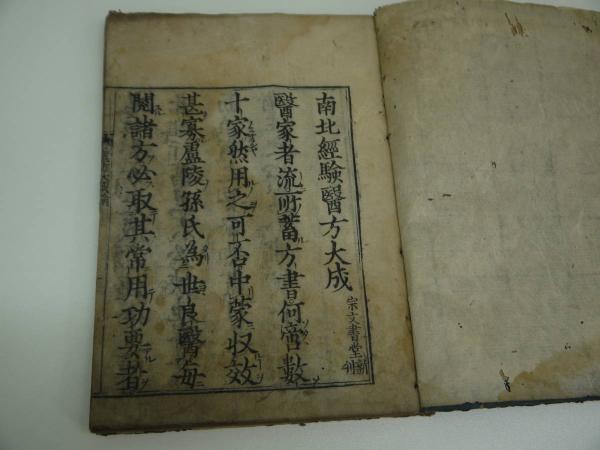 南北經驗醫方大成 宗文書堂新刊
醫家者流所蓄方書何啻數
十家然用之可否中蒙收效
甚寡盧陵孫氏為世良醫每
閱諸方必取其常用功要者